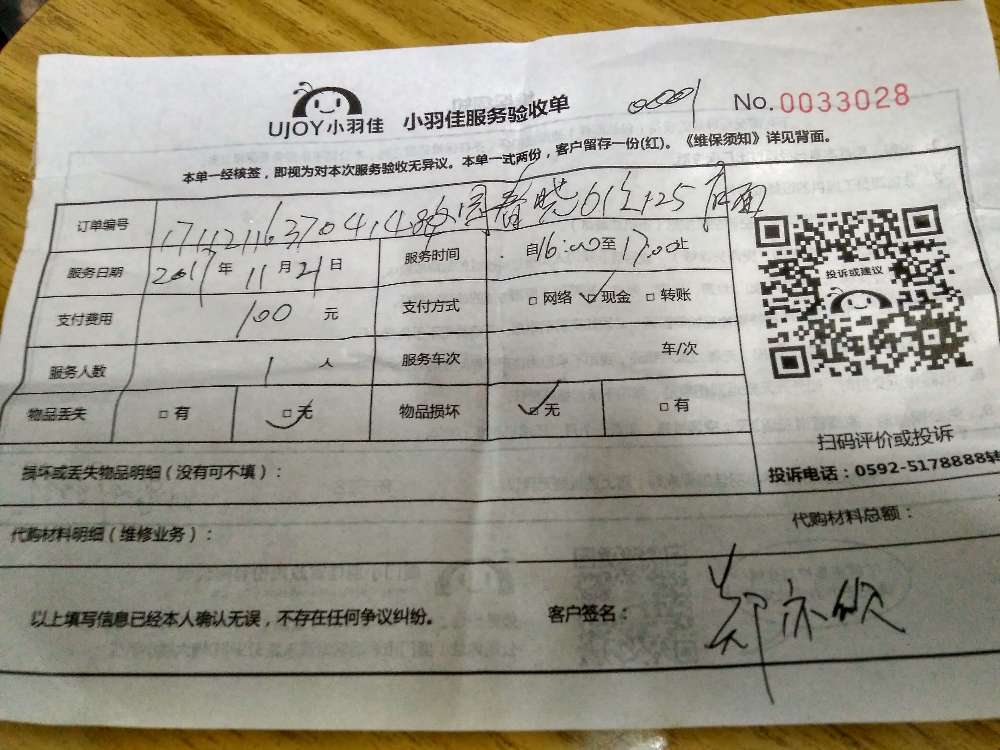 UJOY小羽佳 小羽佳服务验收单 0001 No.0033028
本单一经核签，即视为对本次服务验收无异议。本单一式两份，客户留存一份(红)。《维保须知》详见背面。
订单编号
服务日期 2017年11月21日 服务时间 自16:00至17:00止
投诉或建议
支付费用 100 元 支付方式 □网络 ☑现金 □转账
服务人数 1 人 服务车次 车/次
物品丢失 □有 ☑无 物品损坏 ☑无 □有
扫码评价或投诉
损坏或丢失物品明细（没有可不填）：
投诉电话：0592-5178888转
代购材料明细（维修业务）： 代购材料总额：
以上填写信息已经本人确认无误，不存在任何争议纠纷。 客户签名：